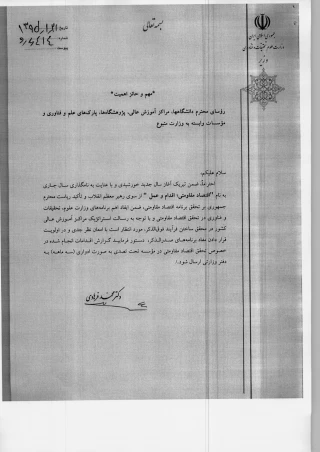 بسمه تعالی
جمهوری اسلامی ایران
وزارت علوم، تحقیقات و فناوری
وزیر
تاریخ
شماره
پیوست
"مهم و حائز اهمیت"
رؤسای محترم دانشگاهها، مراکز آموزش عالی، پژوهشگاهها، پارک‌های علم و فناوری و
مؤسسات وابسته به وزارت متبوع
سلام علیکم،
احتراماً، ضمن تبریک آغاز سال جدید خورشیدی و با عنایت به نامگذاری سال جاری
به نام "اقتصاد مقاومتی؛ اقدام و عمل" از سوی رهبر معظم انقلاب و تأکید ریاست محترم
جمهوری بر تحقق برنامه اقتصاد مقاومتی، ضمن ابلاغ اهم برنامه‌های وزارت علوم، تحقیقات
و فناوری در تحقق اقتصاد مقاومتی و با توجه به رسالت استراتژیک مراکز آموزش عالی
کشور در محقق ساختن فرآیند فوق‌الذکر، مورد انتظار است با امعان نظر جدی و در اولویت
قرار دادن مفاد برنامه‌های صدرالذکر، دستور فرمایید گزارش اقدامات انجام شده در
خصوص تحقق اقتصاد مقاومتی در مؤسسه تحت تصدی به صورت ادواری (سه ماهه) به
دفتر وزارتی ارسال شود./
دکتر محمد فرهادی